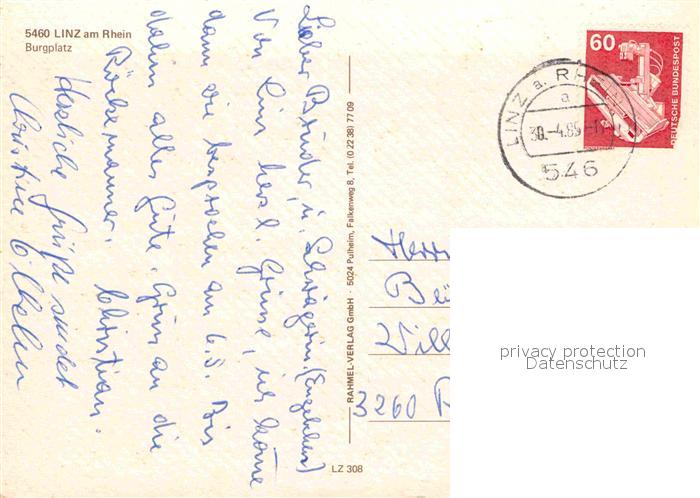 5460 LINZ am Rhein
Burgplatz
Lieber Bruder u. Schwägerin (Engelchen)
Von Linz herzl. Grüsse, ich komme
dann wie besprochen am 6.5. Bis
dahin alles Gute. Gruss an die
Christian.
Herzliche Grüße sendet
Christine
RAHMEL-VERLAG GmbH · 5024 Pulheim, Falkenweg 8, Tel. (0 22 38) 77 09
LZ 308
60
DEUTSCHE BUNDESPOST
LINZ a. RH
a
30.-4.85
546
Herrn
Will
3260 R
privacy protection
Datenschutz